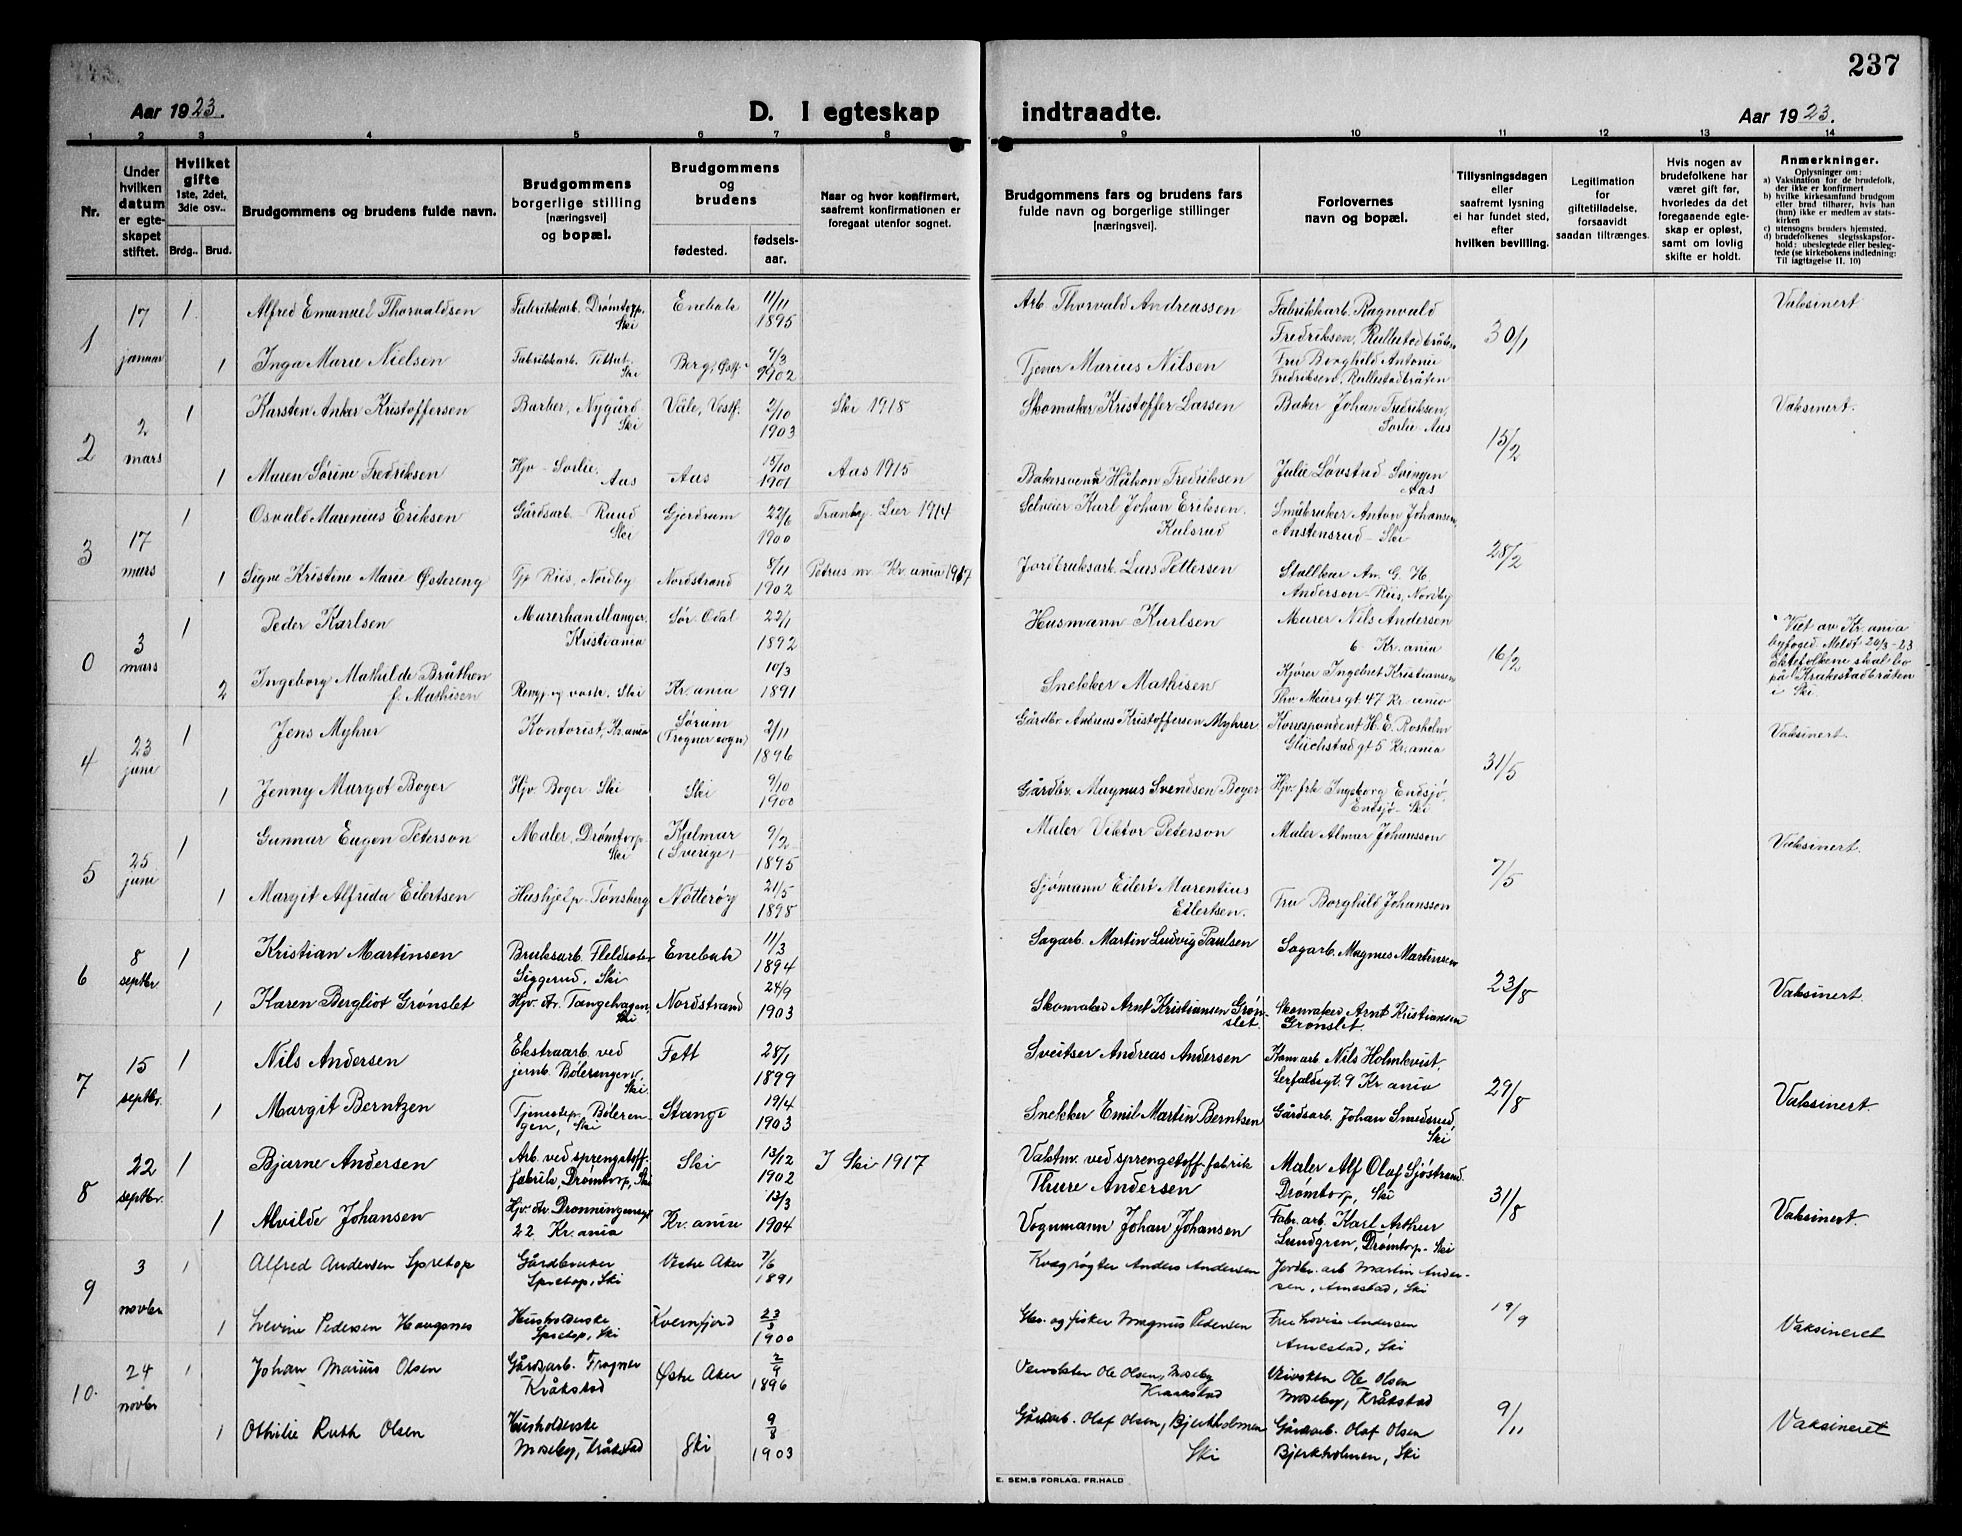 237
Aar 1923.
D. I egteskap indtraadte.
Aar 1923.
1 2 3 4 5 6 7 8 9 10 11 12 13 14
Nr.
Under
hvilken
datum
er egte-
skapet
stiftet.
Hvilket
gifte
1ste, 2det,
3die osv..
Brdg.. Brud.
Brudgommens og brudens fulde navn.
Brudgommens
borgerlige stilling
[næringsvei]
og bopæl.
Brudgommens
og
brudens
fødested.
fødsels-
aar.
Naar og hvor konfirmert,
saafremt konfirmationen er
foregaat utenfor sognet.
Brudgommens fars og brudens fars
fulde navn og borgerlige stillinger
[næringsvei].
Forlovernes
navn og bopæl.
Tillysningsdagen
eller
saafremt lysning
ei har fundet sted,
efter
hvilken bevilling.
Legitimation
for
giftetilladelse,
forsaavidt
saadan tiltrænges.
Hvis nogen av
brudefolkene har
været gift før,
hvorledes da det
foregaaende egte-
skap er opløst,
samt om lovlig
skifte er holdt.
Anmerkninger.
Oplysninger om:
a) Vaksination for de brudefolk,
der ikke er konfirmert
b) hvilke kirkesamfund brudgom
eller brud tilhører, hvis han
(hun) ikke er medlem av stats-
kirken
c) utensogns bruders hjemsted.
d) brudefolkenes slegtsskapsfor-
hold: ubeslegtede eller besleg-
tede (se kirkebokens indledning:
Til iagttagelse II. 10)
1
17
januar
1
Alfred Emanuel Thorvaldsen
Fabrikkarb. Drømtorp,
Ski
Enebak
11/11
1895
Arb Thorvald Andreassen
Fabrikkarb. Ragnvald
Fredriksen, Rullestadbråten
30/1
Vaksinert.
1
Inga Marie Nielsen
Fabrikkarb.
Ski
Berg, Østf.
9/3
1902
Tjener Marius Nilsen
Fru Borghild Antonie
Fredriksen, Rullestadbråten
2
2
mars
1
Karsten Anker Kristoffersen
Barber, Nygård
Ski
Våle, Vestf.
2/10
1903
Ski 1918
Skomaker Kristoffer Larsen
Baker Johan Fredriksen,
Sorlie Aas
15/2
Vaksinert.
1
Maren Sørine Fredriksen
Hjv - Sorlie,
Aas
Aas
15/10
1901
Aas 1915
Bakersvenn Håkon Fredriksen
Julie Løvstad Svingen
Aas
3
17
mars
1
Osvald Marenius Eriksen
Gårdsarb - Ruud
Ski
Gjerdrum
22/6
1900
Tranby - Lier 1914
Selveier Karl Johan Eriksen.
Kulsrud
Småbruker Anton Johansen,
Austensrud - Ski
28/2
1
Signe Kristine Marie Østereng
Tjp Riis, Nordby
Nordstrand
8/11
1902
Petrus m. Kr.ania 1917
Jordbruksarb. Lars Pettersen
Stallkar An. G. H.
Anderson - Riis, Nordby
0
3
mars
1
Peder Karlsen
Murerhandlanger.
Kristiania
Sør. Odal
22/1
1892
Husmann Karlsen
Murer Nils Andersen
6 Kr.ania
16/2
Viet av Kr.ania
byfoged Meldt 24/3-23
Ektefolkene skal bo
på Krakestadbråten
i Ski.
2
Ingeborg Mathilde Bråthen
f. Mathisen
Rengj. og vaske. Ski
Kr.ania
10/3
1891
Snekker Mathisen
Kjører Ingebret Kristiansen
Thv. Meiers gt. 47 Kr.ania
4
23
juni
1
Jens Myhrer
Kontorist, Kr.ania
Sørum
(Frogner sogn)
2/11
1896
Gårdbr. Andreas Kristoffersen Myhrer
Korrespondent H. E. Rosholm
Glückstad gt 5 Kr.ania
31/5
Vaksinert.
1
Jenny Margot Boger
Hjv. Boger - Ski
Ski
9/10
1900
Gårdbr. Magnus Svendsen Boger
Hjv. frk Ingeborg Endsjø,
Endsjø - Ski
5
25
juni
1
Gunnar Eugen Peterson
Maler, Drømtorp
Ski
Kalmar
(Sverige)
9/2
1895
Maler Viktor Peterson
Maler Almar Johansson
7/5
Vaksinert.
1
Margit Alfrida Eilertsen
Hushjelp - Tønsberg
Nøtterøy
21/5
1898
Sjømann Eilert Marentius
Eilertsen.
Fru Borghild Johansson
6
8
septbr
1
Kristian Martinsen
Bruksarb.
Siggerud, Ski
Enebak
11/3
1894
Sagarb. Martin Ludvig Paulsen
Sagarb. Magnus Martinsen
23/8
Vaksinert.
1
Karen Bergliot Grønslet
Hjv. dr. Tangehagen,
Ski
Nordstrand
24/9
1903
Skomaker Arnt Kristiansen Grøn-
slet.
Skomaker Arnt Kristiansen
Grønslet.
7
15
septbr.
1
Nils Andersen
Ekstraarb. ved
jernb. Bølerengen,
Ski
Fett
28/1
1899
Sveitser Andreas Andersen
Kom arb Nils Holmkvist,
Lerfaldsgt. 9 Kr ania
29/8
Vaksinert.
1
Margit Berntzen
Tjenestep, Bøleren-
gen, Ski
Stange
19/4
1903
Snekker Emil Martin Berntsen
Gårdsarb. Johan Smedsrud,
Ski
8
22
septbr.
1
Bjarne Andersen
Arb. ved sprengstoff-
fabrik, Drømtorp, Ski
Ski
13/12
1902
I Ski 1917
Vaktm. ved sprengstoff-fabrik
Thure Andersen
Maler Alf Olaf Sjöstrand
Drømtorp, Ski
31/8
Vaksinert.
1
Alvilde Johansen
Hjv. dr. Dronningensgt
22 Kr.ania
Kr.ania
13/3
1904
Vognmann Johan Johansen
Fabr. arb. Karl Arthur
Lundgren, Drømtorp - Ski
9
3
novbr
1
Alfred Andersen Spretop
Gårdbruker
Spretop, Ski
Vestre Aker
7/6
1891
Kvægrøgter Anders Andersen
Jordbr. arb Martin Ander-
sen, Arnestad, Ski
19/9
1
Lovine Pedersen Haugsnes
Husholderske
Spretop, Ski
Kvernfjord
23/3
1900
Gbr. og fisker Magnus Pedersen
Fru Lovise Andersen
Arnestad, Ski
Vaksineret
10.
24
novbr
1
Johan Marius Olsen
Gårdsarb. Frogner
Kråkstad
Østre Aker
2/9
1896
Veivokter Ole Olsen, Moseby
Kraakstad
Veivokter Ole Olsen
Moseby, Kråkstad
9/11
1
Othilie Ruth Olsen
Husholderske
Moseby, Kråkstad
Ski
9/8
1903
Gårdsarb. Olaf Olsen, Bjerkholmen
Ski
Gårdsarb. Olaf Olsen
Bjerkholmen, Ski
Vaksineret
E. SEM,S FORLAG, FR.HALD